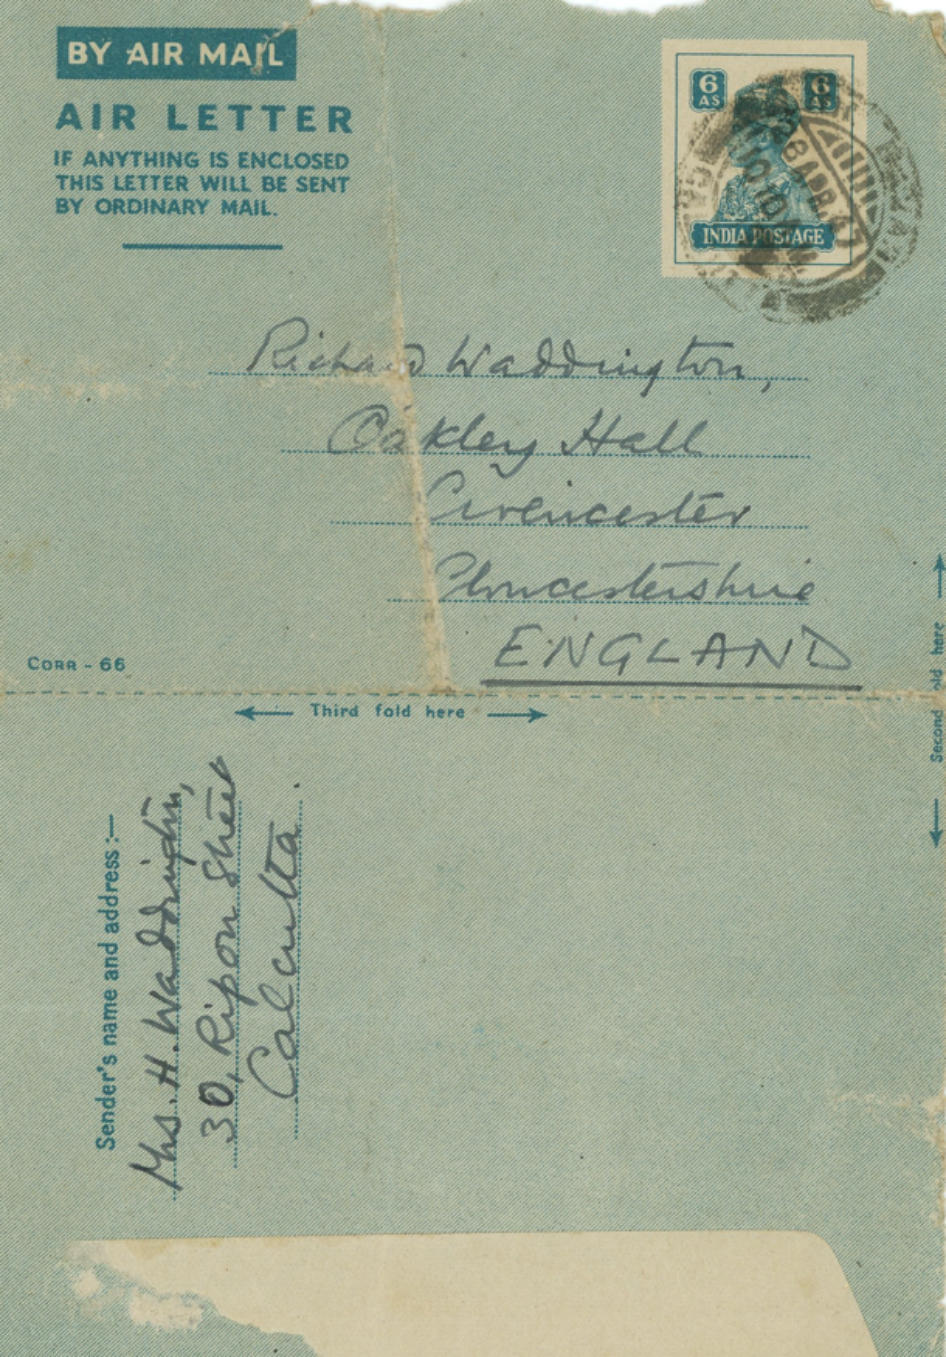 BY AIR MAIL
AIR LETTER
IF ANYTHING IS ENCLOSED
THIS LETTER WILL BE SENT
BY ORDINARY MAIL.
6 AS 6 AS
8 APR. 47
INDIA POSTAGE
Richard Waddington,
Oakley Hall
Cirencester
Gloucestershire
ENGLAND
CORR - 66
Third fold here
Second fold here
Sender's name and address :—
Mrs. H. Waddington,
30, Ripon Street
Calcutta.